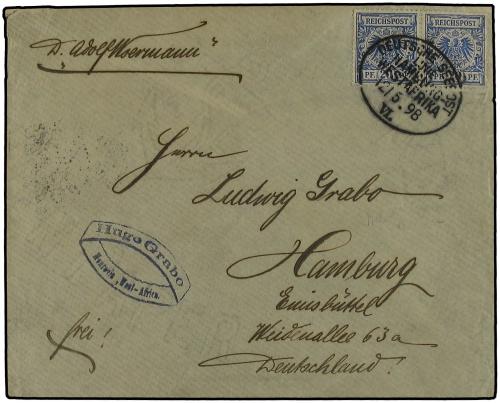 D. "Adolf Woermann"
REICHSPOST REICHSPOST
PF. PF.
DEUTSCHE SEEPOST
HAMBURG-
WESTAFRIKA
12/5.98
VI.
Herrn
Ludwig Grabo
Hamburg
Eimsbüttel
Weidenallee 63a
Deutschland!
Hugo Grabo
West-Africa.
frei!